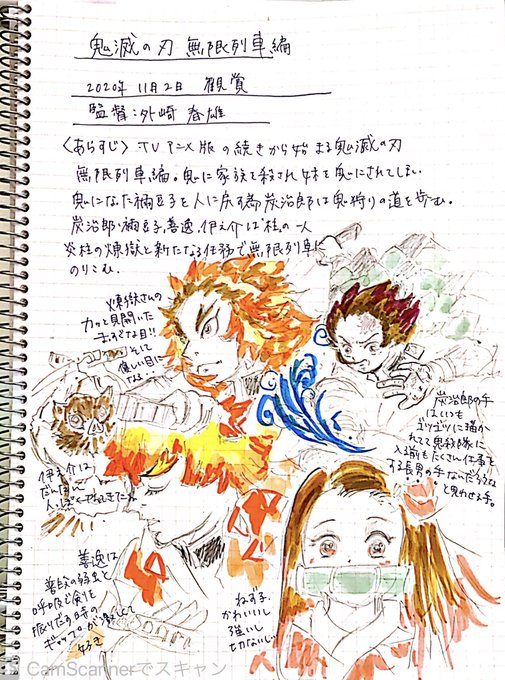 鬼滅の刃 無限列車編
2020年 11月2日 観賞
監督:外崎 春雄
〈あらすじ〉TVアニメ版の続きから始まる鬼滅の刃
無限列車編。鬼に家族を殺され妹を鬼にされてしまい
鬼になった禰豆子を人に戻す為炭治郎は鬼狩りの道を歩む。
炭治郎・禰豆子、善逸、伊之介は"柱"の一人
炎柱の煉獄と新たなる任務で無限列車に
のりこむ。
煉獄さんの
カッと見開いた
まっすぐな目!!
そして
優しい目に
炭治郎の手
はいつも
ゴツゴツに描か
れてて鬼殺隊に
入る前もたくさん仕事を
する長男の手なんだろうな
と思わせる手。
伊之介は
だんだん
人っぽくなってきたね
善逸は
普段の弱虫と
呼吸で剣を
振りだす時の
ギャップが激しくて
好き
ねず子、
かわいいし
強いし
切ないし
CamScannerでスキャン